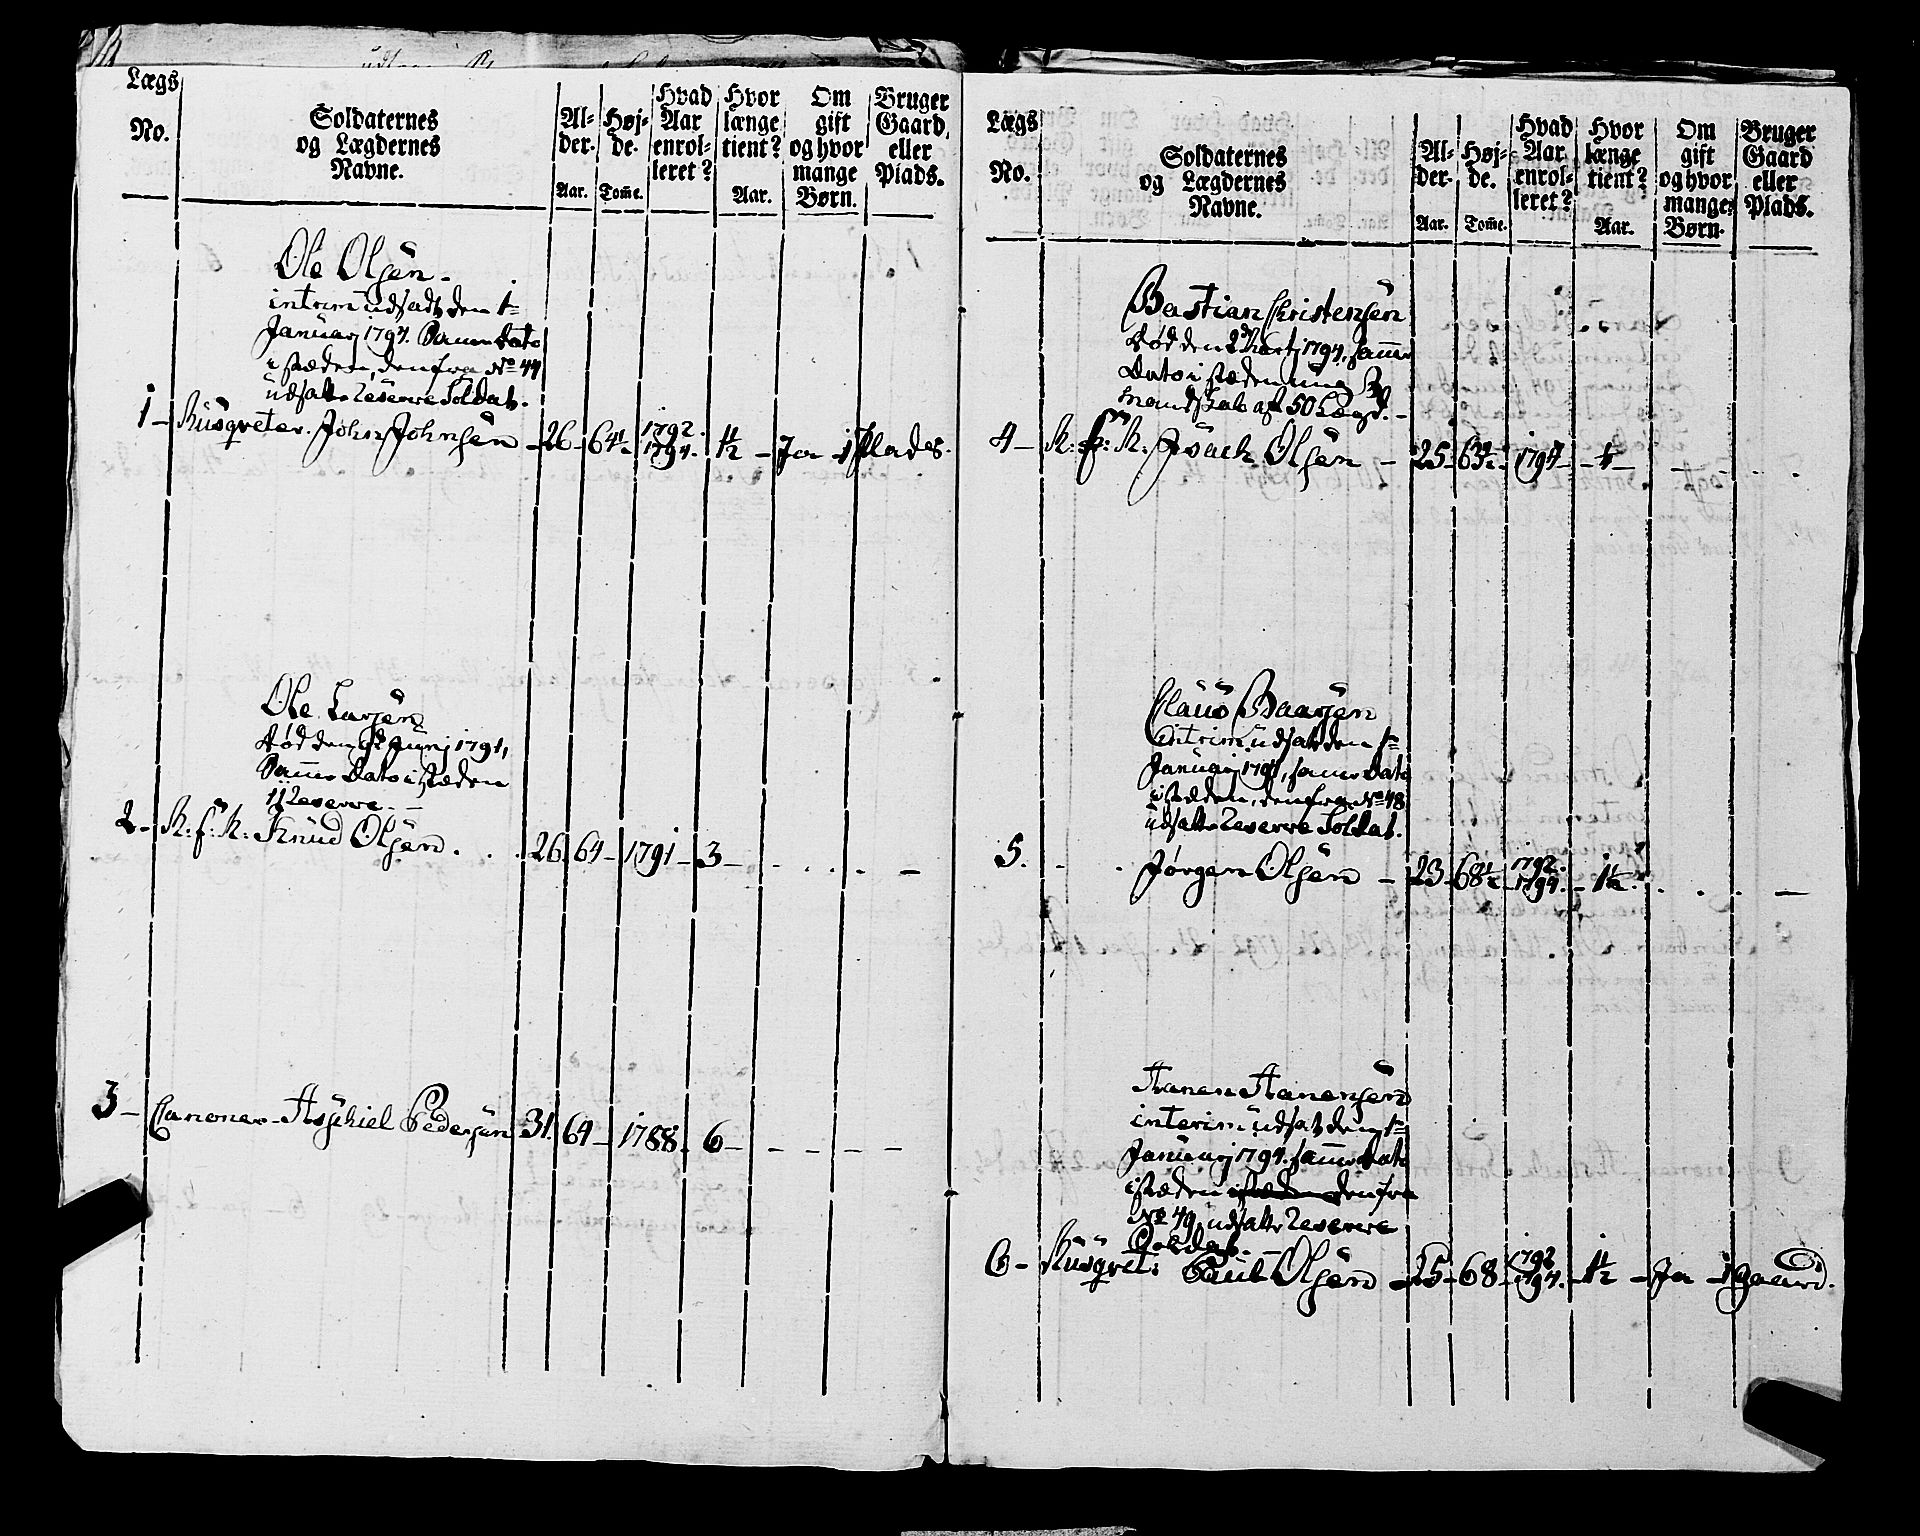 Lægs
No.
Soldaternes
og Lægdernes
Navne.
Al-
der.
Aar.
Høj-
de.
Tom̃e.
Hvad
Aar
enrol-
leret?
Hvor
længe
tient?
Aar.
Om
gift
og hvor
mange
Børn.
Bruger
Gaard,
eller
Plads.
Ole Olsen.
interim udsadt den 1te
Januarj 1794. Samme Dato
i stæden, den fra No 44
udsatte Reserve Soldat.
1 - Musqveter. John Johnsen - 26 - 64½ 1792. 1794. 1½ - Ja - 1 Plads.
Ole Larsen
død den Junj 1791,
Samme Dato i stæden
1 Reserve. -
2 - R: f: K: Knud Olsen. 26. 64 - 1791 - 3 -
3 - Canoner - Asskiel Pedersen 31. 64 - 1788. 6 -
Lægs
No.
Soldaternes
og Lægdernes
Navne.
Al-
der.
Aar.
Høj-
de.
Tom̃e.
Hvad
Aar
enrol-
leret?
Hvor
længe
tient?
Aar.
Om
gift
og hvor
mange
Børn.
Bruger
Gaard
eller
Plads.
Bastian Christensen
død den 1794, samme
Dato i stæden ung
Mandskab af 50 Lægd. -
4 - R: f: K. Isack Olsen - 25 - 63½ - 1794 -
Claus Baarsen
interim udsatt den 1te
Januarj 1794, samme Dato
i stæden, den fra No 48
udsatte Reserve Soldat.
5. Jørgen Olsen - 23 - 68½ - 1792. 1794. - 1½.
Hanen Hanensen
interim udsat den 1te
Januarj 1794. samme Dato
i stæden den fra
No 49 udsatte Reserve
Soldat.
6 - Musqvet: Poul Olsen - 25 - 68 - 1792 1794. - 1½ - Ja - 1 gaard.